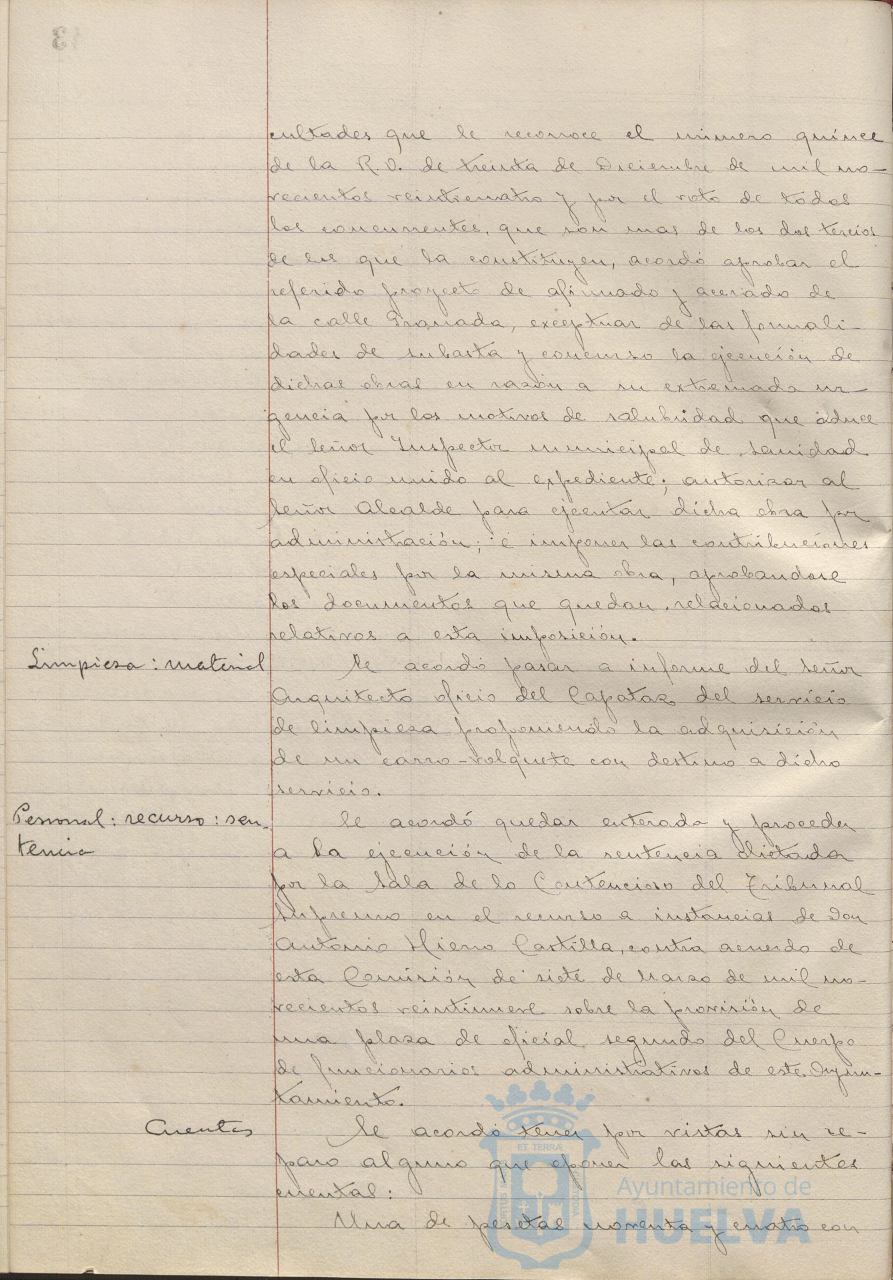 cultades que le reconoce el número quince
de la R. O. de treinta de Diciembre de mil no-
vecientos veinticuatro y por el voto de todos
los concurrentes, que son mas de los dos tercios
de los que la constituyen, acordó aprobar el
referido proyecto de afirmado y acerado de
la calle Granada, exceptuar de las formali-
dades de subasta y concurso la ejecución de
dichas obras en razón a su extremada ur-
gencia por los motivos de salubridad que aduce
el Señor Inspector municipal de Sanidad
en oficio unido al expediente; autorizar al
Señor Alcalde para ejecutar dicha obra por
administración; é imponer las contribuciones
especiales por la misma obra, aprobandose
los documentos que quedan relacionados
relativos a esta imposición.
Limpieza: material
Se acordó pasar a informe del Señor
Arquitecto oficio del Capataz del servicio
de limpieza proponiendo la adquisición
de un carro-volquete con destino a dicho
servicio.
Personal: recurso: sen-
tencia
Se acordó quedar enterada y proceder
a la ejecución de la sentencia dictada
por la Sala de lo Contencioso del Tribunal
Supremo en el recurso a instancias de Don
Antonio Hierro Castilla, contra acuerdo de
esta Comisión de siete de Marzo de mil no-
vecientos veintinueve sobre la provisión de
una plaza de oficial segundo del Cuerpo
de funcionarios administrativos de este Ayun-
tamiento.
Cuentas
Se acordó tener por vistas sin re-
paro alguno que oponer las siguientes
cuentas:
Una de pesetas noventa y cuatro con
ET TERRÆ
Ayuntamiento de
HUELVA